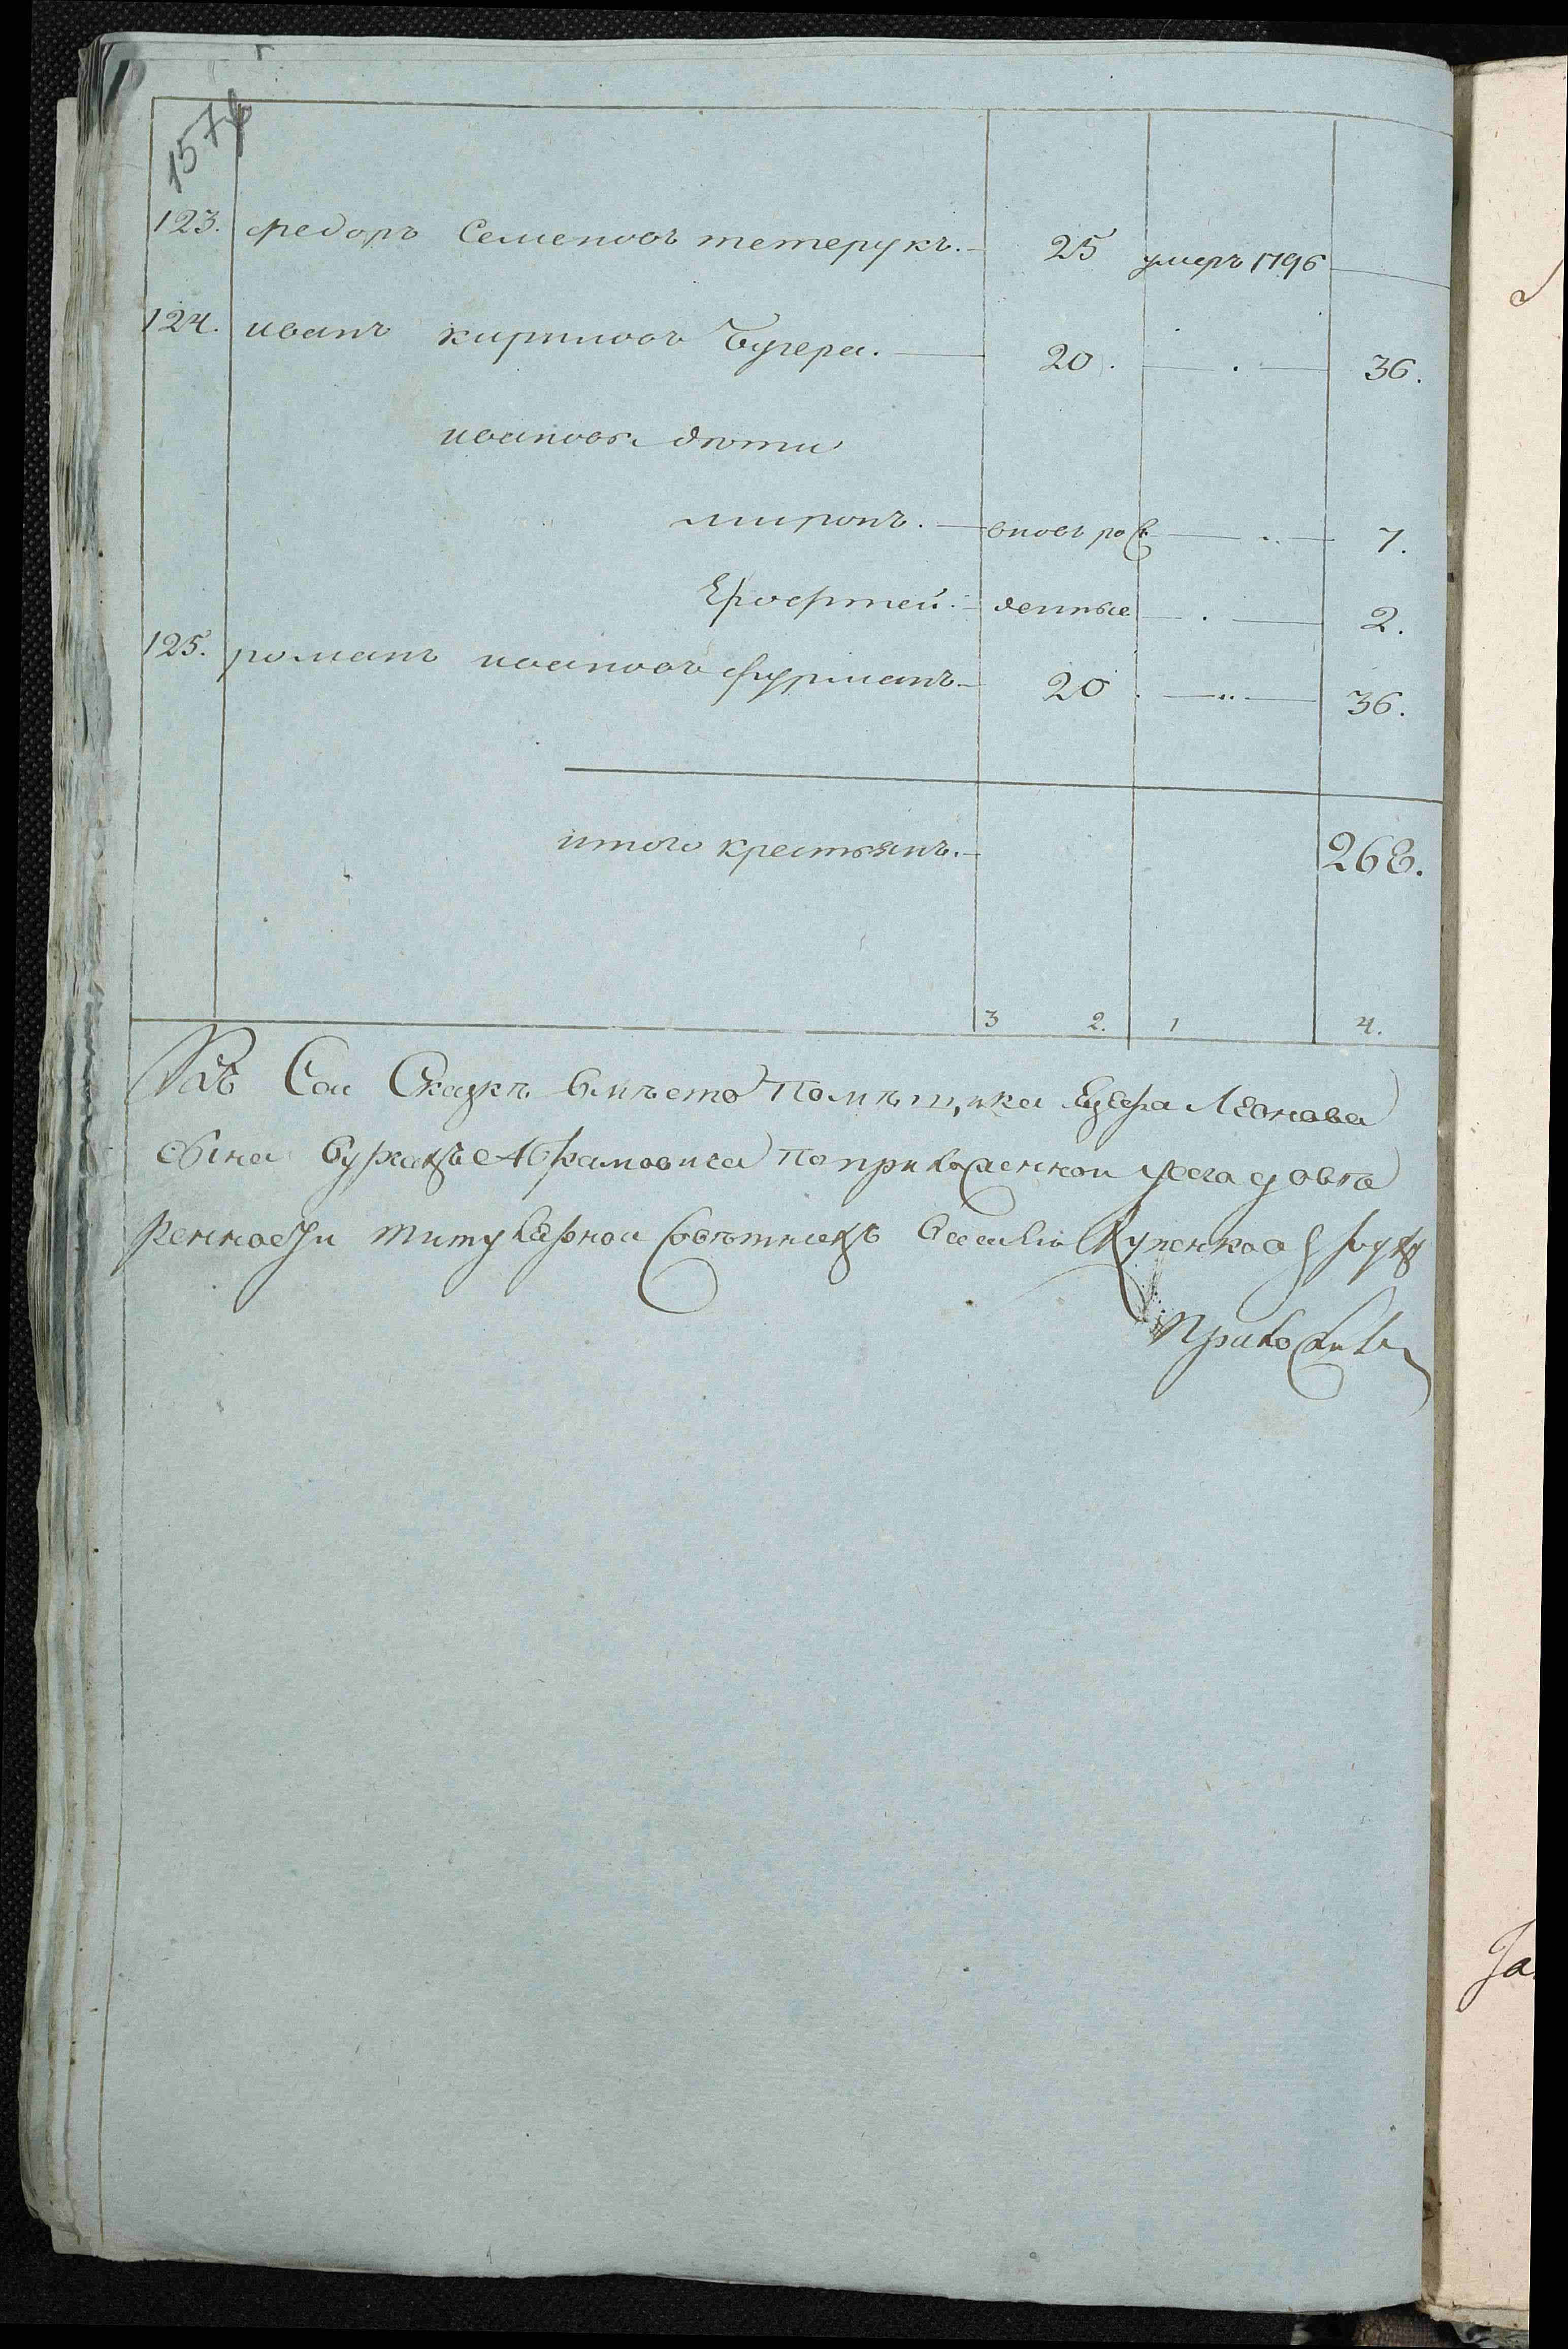 157
123. федоръ Семеновъ тетерукъ. 25 умеръ 1796
124. иванъ кириловъ Бугера. 20. 36.
ивановы дѣти
миронъ. вновь рож 7.
Ерофтей. денные 2.
125. романъ ивановъ фурманъ 20. 36.
итого крестьянъ. 268.
3 2. 1 4.
Къ Сеи Сказкѣ вмѣсто Помѣщика Леонова
сына Абрамовича По приложеннои усего довѣ
ренности титулярнои Совѣтникъ Василий руку
Приложилъ